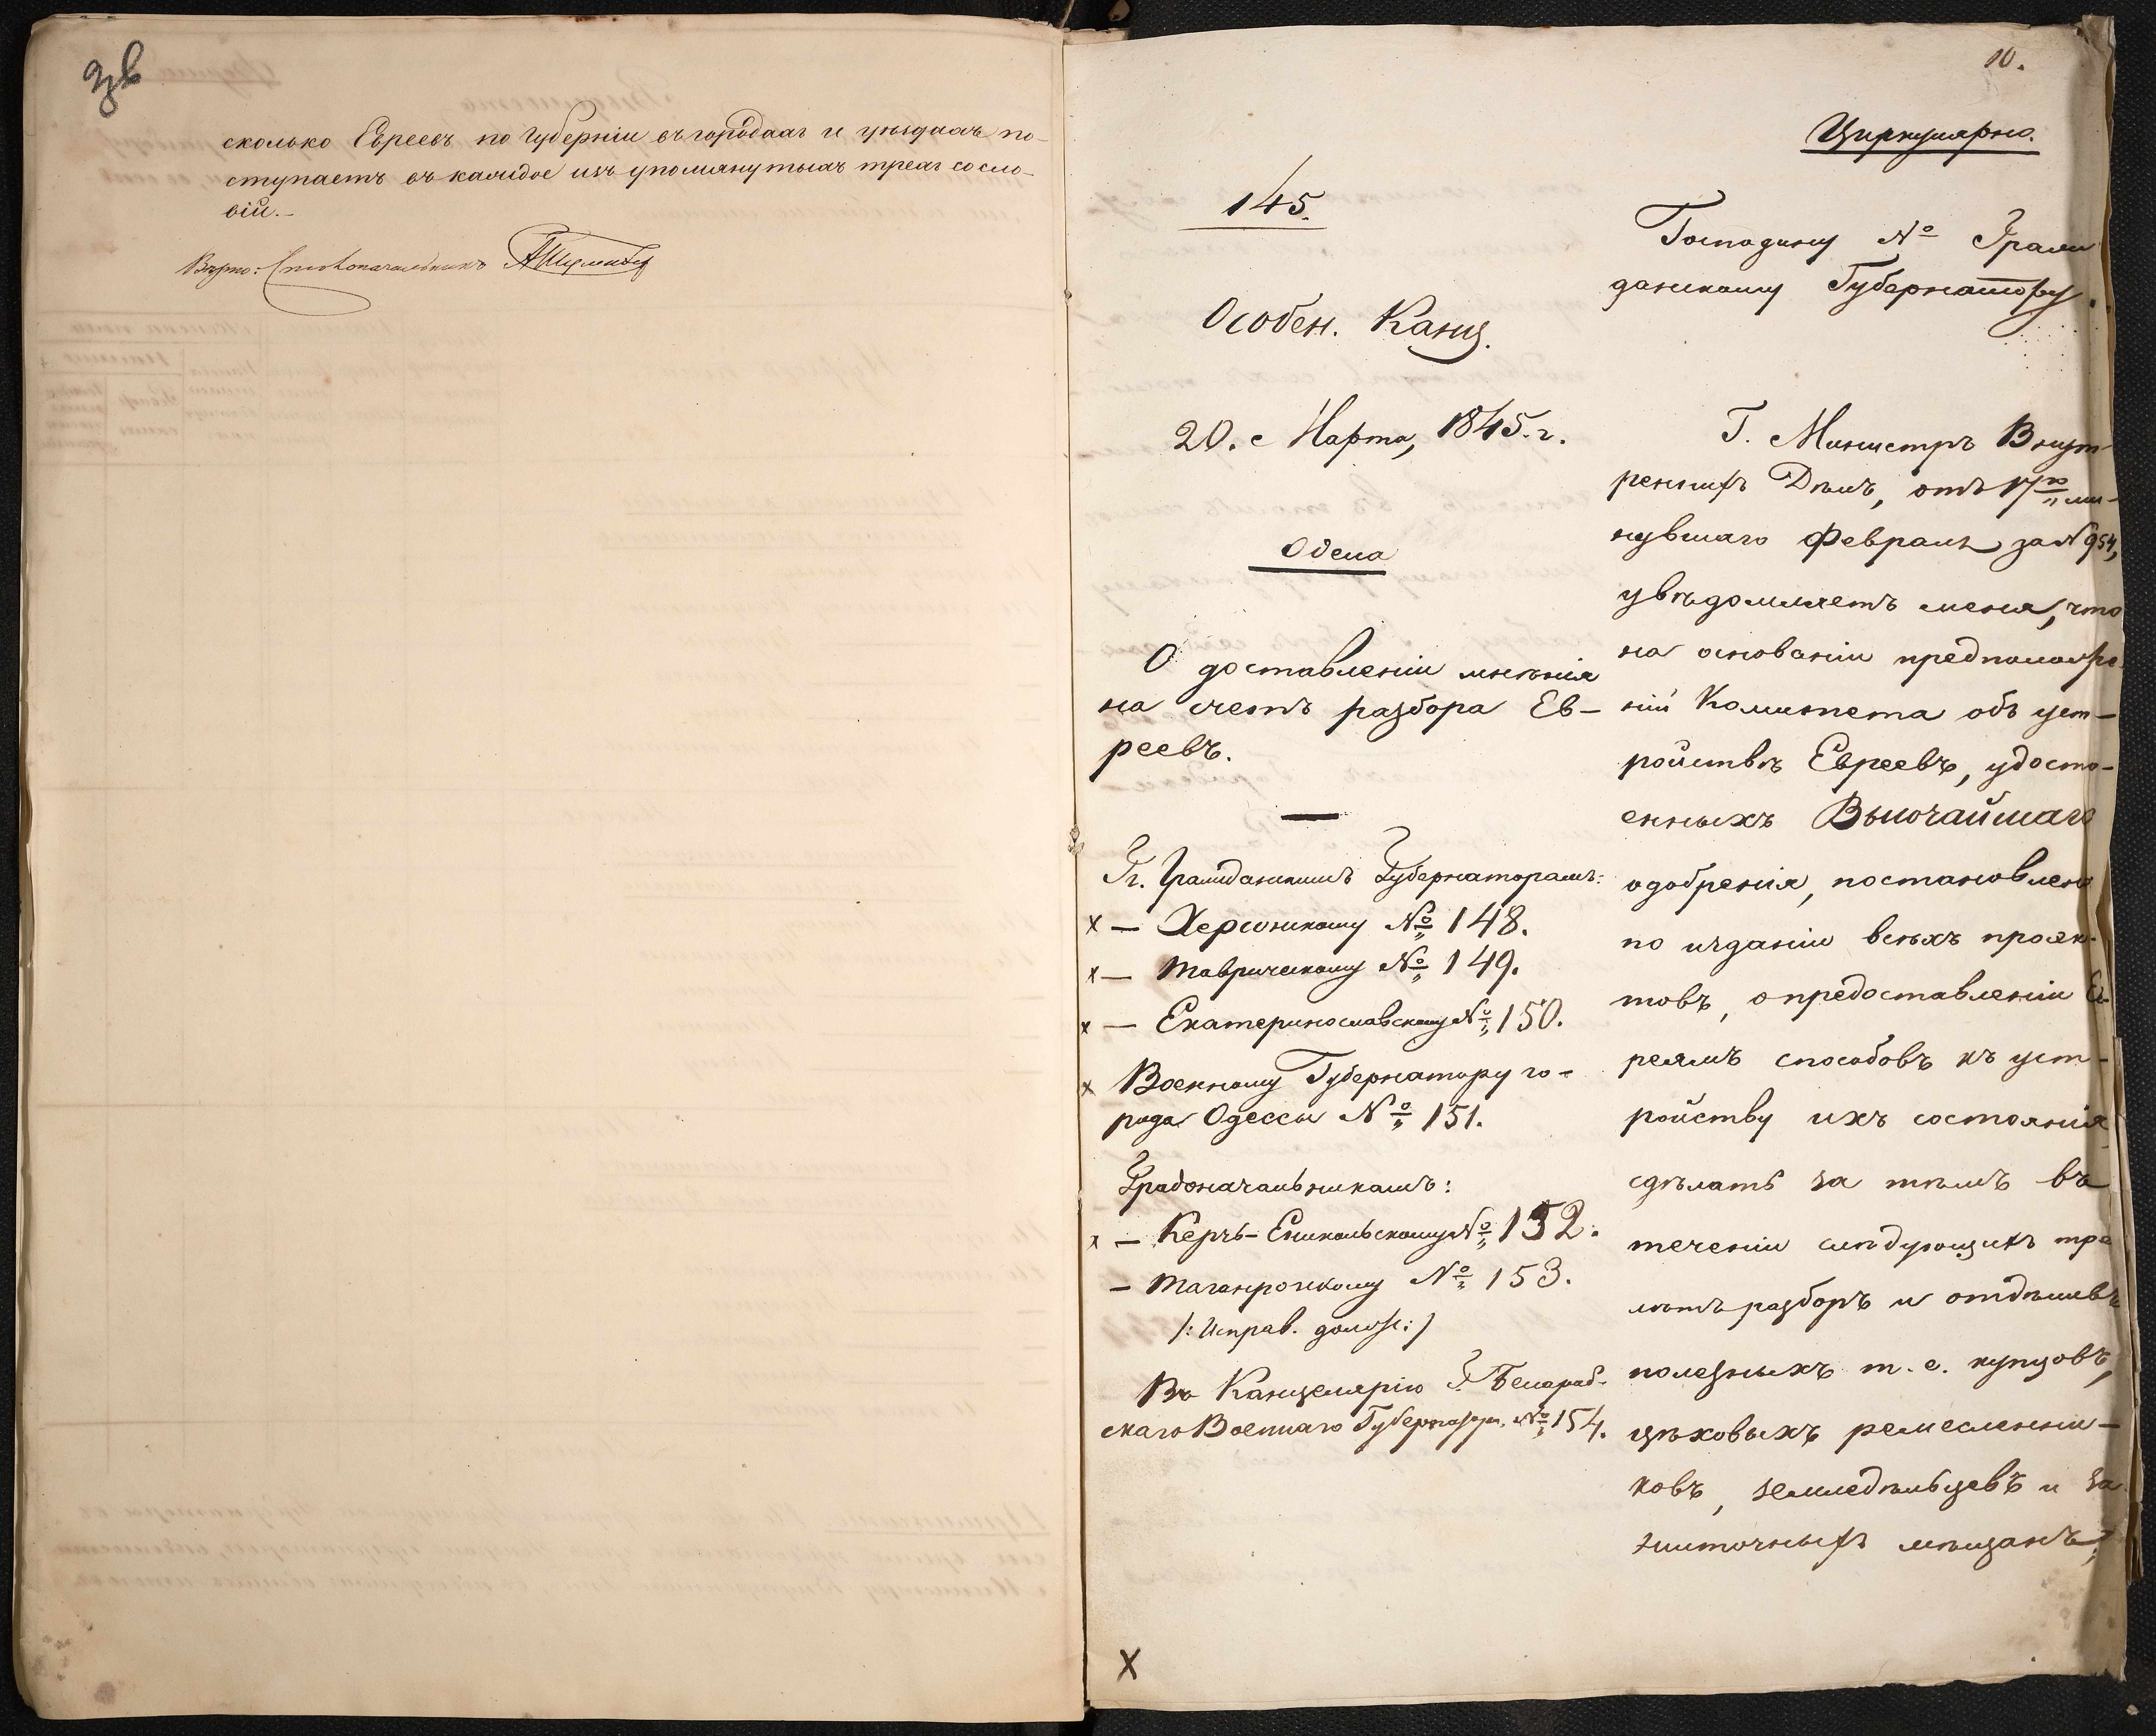 зв
сколько Евреевъ по Губерніи въ городахъ и уѣздахъ по-
ступаетъ въ каждое изъ упомянутыхъ трехъ сосло-
вій.-
Вѣрно: Столоначальникъ
10.
Циркулярно.
145.
Особен. Канц.
20. Марта, 1845. г.
Одесса
О доставленіи мнѣнія
на счетъ разбора Ев-
реевъ.
Гг. Гражданскимъ Губернаторамъ:
х — Херсонскому № 148.
х — Таврическому № 149.
х — Екатеринославскому № 150.
х Военному Губернатору го-
рода Одессы № 151.
Градоначальникамъ:
х — Керчь-Еникольскому № 152.
— Таганрогскому № 153.
/: Исправ. долж: /
Въ Канцелярію Г. Бессараб-
скаго Военнаго Губернатора. № 154.
х
Господину № Граж
данскому Губернатору.
Г. Министръ Внут-
реннихъ Дѣлъ, отъ 17го ми-
нувшаго Февраля за № 954,
увѣдомляетъ меня, что
на основаніи предположе
ній Комитета объ уст-
ройствѣ Евреевъ, удосто-
енныхъ Высочайшаго
одобренія, постановлено
по изданіи всѣхъ проэк-
товъ, о предоставленіи Ев
реямъ способовъ къ уст-
ройству ихъ состоянія
сдѣлать за тѣмъ въ
теченіи слѣдующихъ трехъ
лѣтъ разборъ и отдѣливъ
полезныхъ т. е. купцовъ,
цѣховыхъ ремесленни-
ковъ, земледѣльцевъ и за
житочныхъ мѣщанъ,